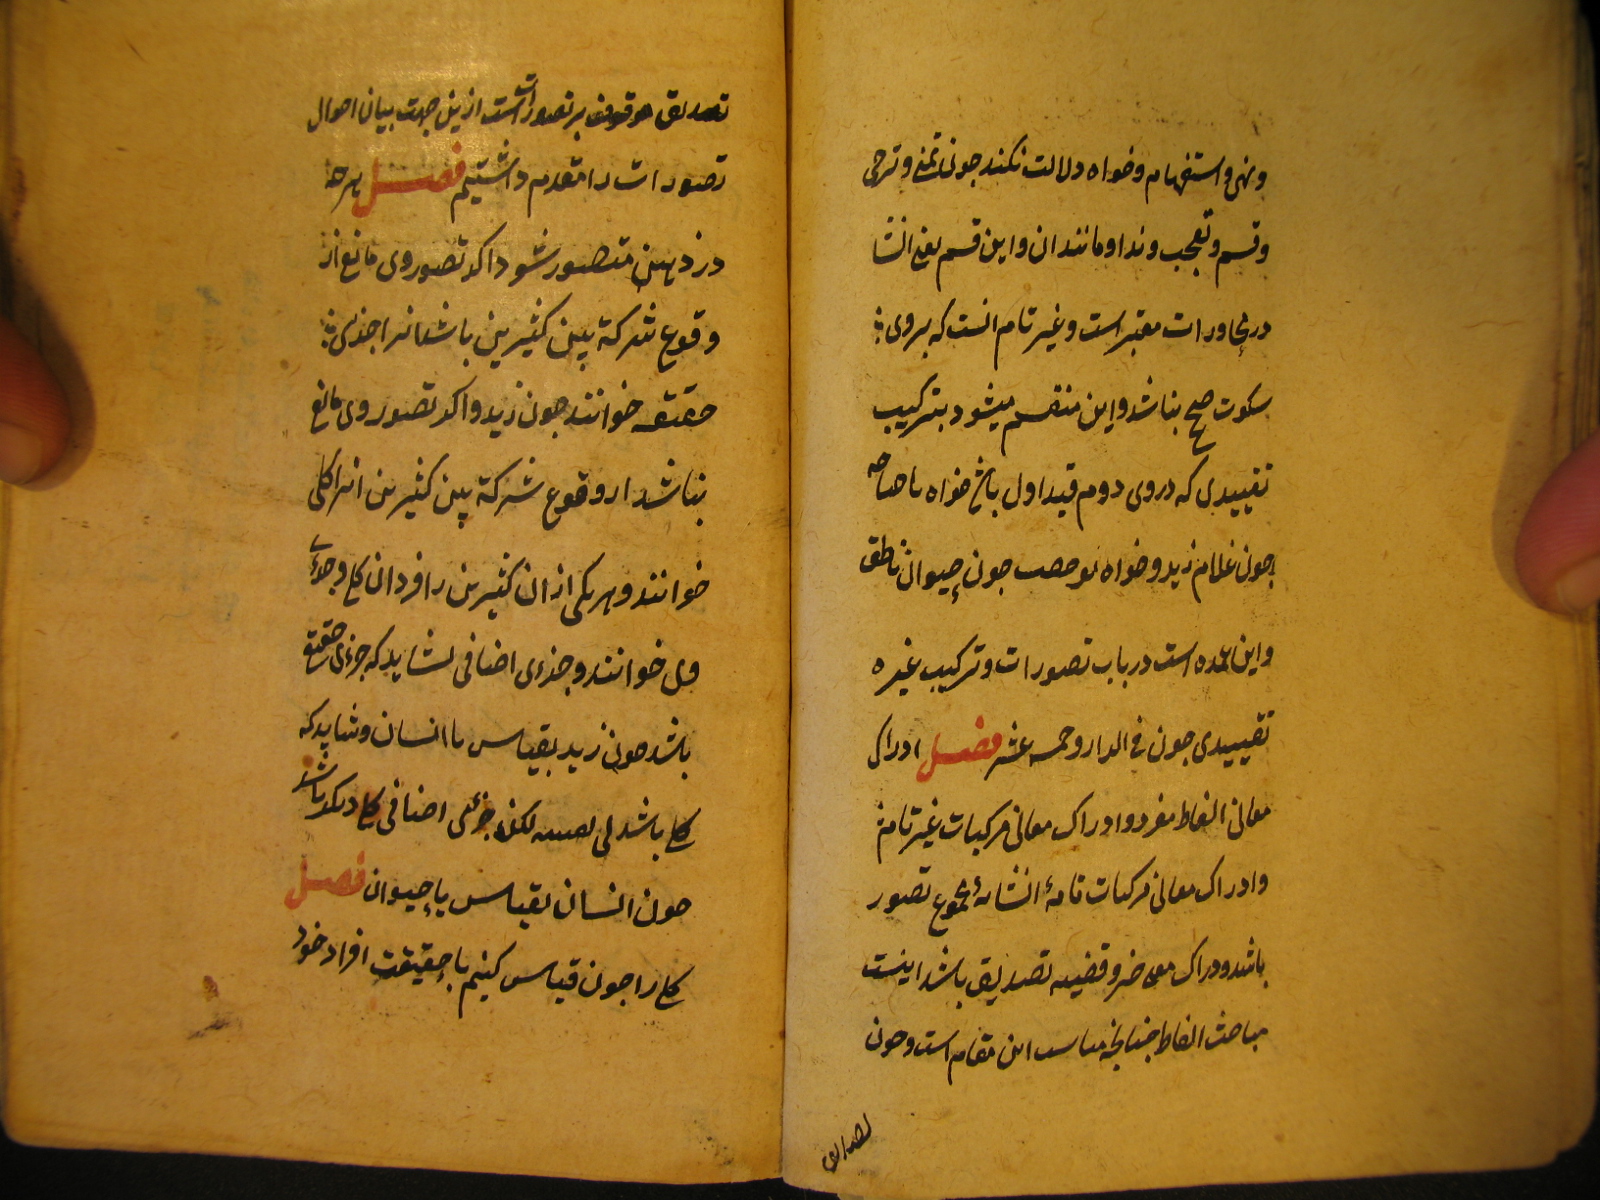 ونهی و استفهام و خواه دلالت نکند چون تمنی و ترجی
وقسم و تعجب و ندا و مانند ان و این قسم یعنی انشا
در محاورات معتبر است و غیر تام انست که بر وی
سکوت صحیح نباشد و این منقسم میشود بترکیب
تقییدی که دروی دوم قید اول باشد خواه باضافه
چون غلام زید و خواه بوصف چون حیوان ناطق
و این عمده است در باب تصورات و ترکیب غیره
تقییدی چون فی الدار و خمسه عشر فصل ادراک
معانی الفاظ مفرد و ادراک معانی مرکبات غیر تامه
و ادراک معانی مرکبات تامهٔ انشائیهٔ مجموع تصور
باشد ودراک معنی خبر و قضیه تصدیق باشد اینست
مباحث الفاظ چنانچه مناسب این مقام است و چون
تصدیق
تصدیق موقوف بر تصوراتست ازین جهت بیان احوال
تصورات را مقدم داشتیم فصل هرچه
در ذهن متصور شود اگر تصور وی مانع از
وقوع شرکة بین کثیرین باشد انرا جزی
حقیقی خوانند چون زید و اگر تصور وی مانع
نباشد از وقوع شرکة بین کثیرین انرا کلی
خوانند و هر یکی از ان کثیرین را فرد ان کلی و جزئی
وی خوانند و جزءی اضافی نشاید که جزءی حقیقی
باشد چون زید بقیاس با انسان و شاید که
کلی باشد فی نفسه لکن جزئی اضافی کلی دیگر باشد
چون انسان بقیاس با حیوان فصل
کلی را چون قیاس کنیم با حقیقت افراد خود